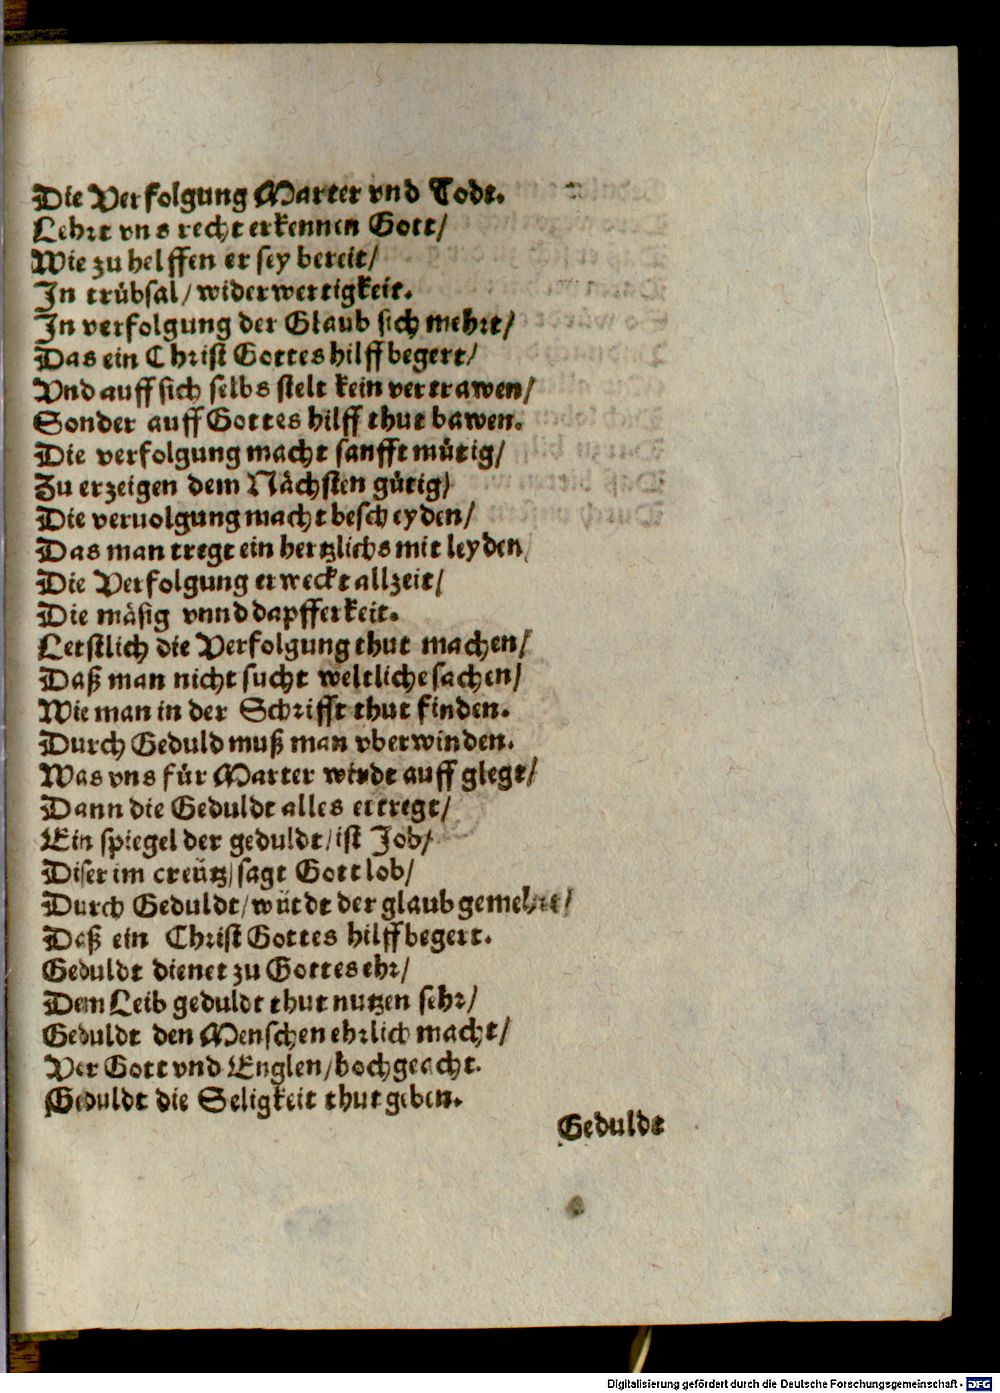 Die Verfolgung Marter vnd Todt.
Lehrt vns recht erkennen Gott/
Wie zu helffen er sey bereit/
In trübsal/ widerwertigkeit.
In verfolgung der Glaub sich mehrt/
Das ein Christ Gottes hilff begert/
Vnd auff sich selbs stelt kein vertrawen/
Sonder auff Gottes hilff thut bawen.
Die verfolgung macht sanfftmütig/
Zu erzeigen dem Nächsten gütig/
Die veruolgung macht bescheyden/
Das man tregt ein hertzlichs mit leyden/
Die Verfolgung erweckt allzeit/
Die mäsig vnnd dapfferkeit.
Letstlich die Verfolgung thut machen/
Daß man nicht sucht weltliche sachen/
Wie man in der Schrifft thut finden.
Durch Geduld muß man vberwinden.
Was vns für Marter wirdt auff glegt/
Dann die Geduldt alles ertregt/
Ein spiegel der geduldt/ ist Job/
Diser im creütz/ sagt Gott lob/
Durch Geduldt/ würdt der glaub gemehrt/
Daß ein Christ Gottes hilff begert.
Geduldt dienet zu Gottes ehr/
Dem Leib geduldt thut nutzen sehr/
Geduldt den Menschen ehrlich macht/
Ver Gott vnd Englen/ hochgeacht.
Geduldt die Seligkeit thut geben.
Geduldt
Digitalisierung gefördert durch die Deutsche Forschungsgemeinschaft - DFG